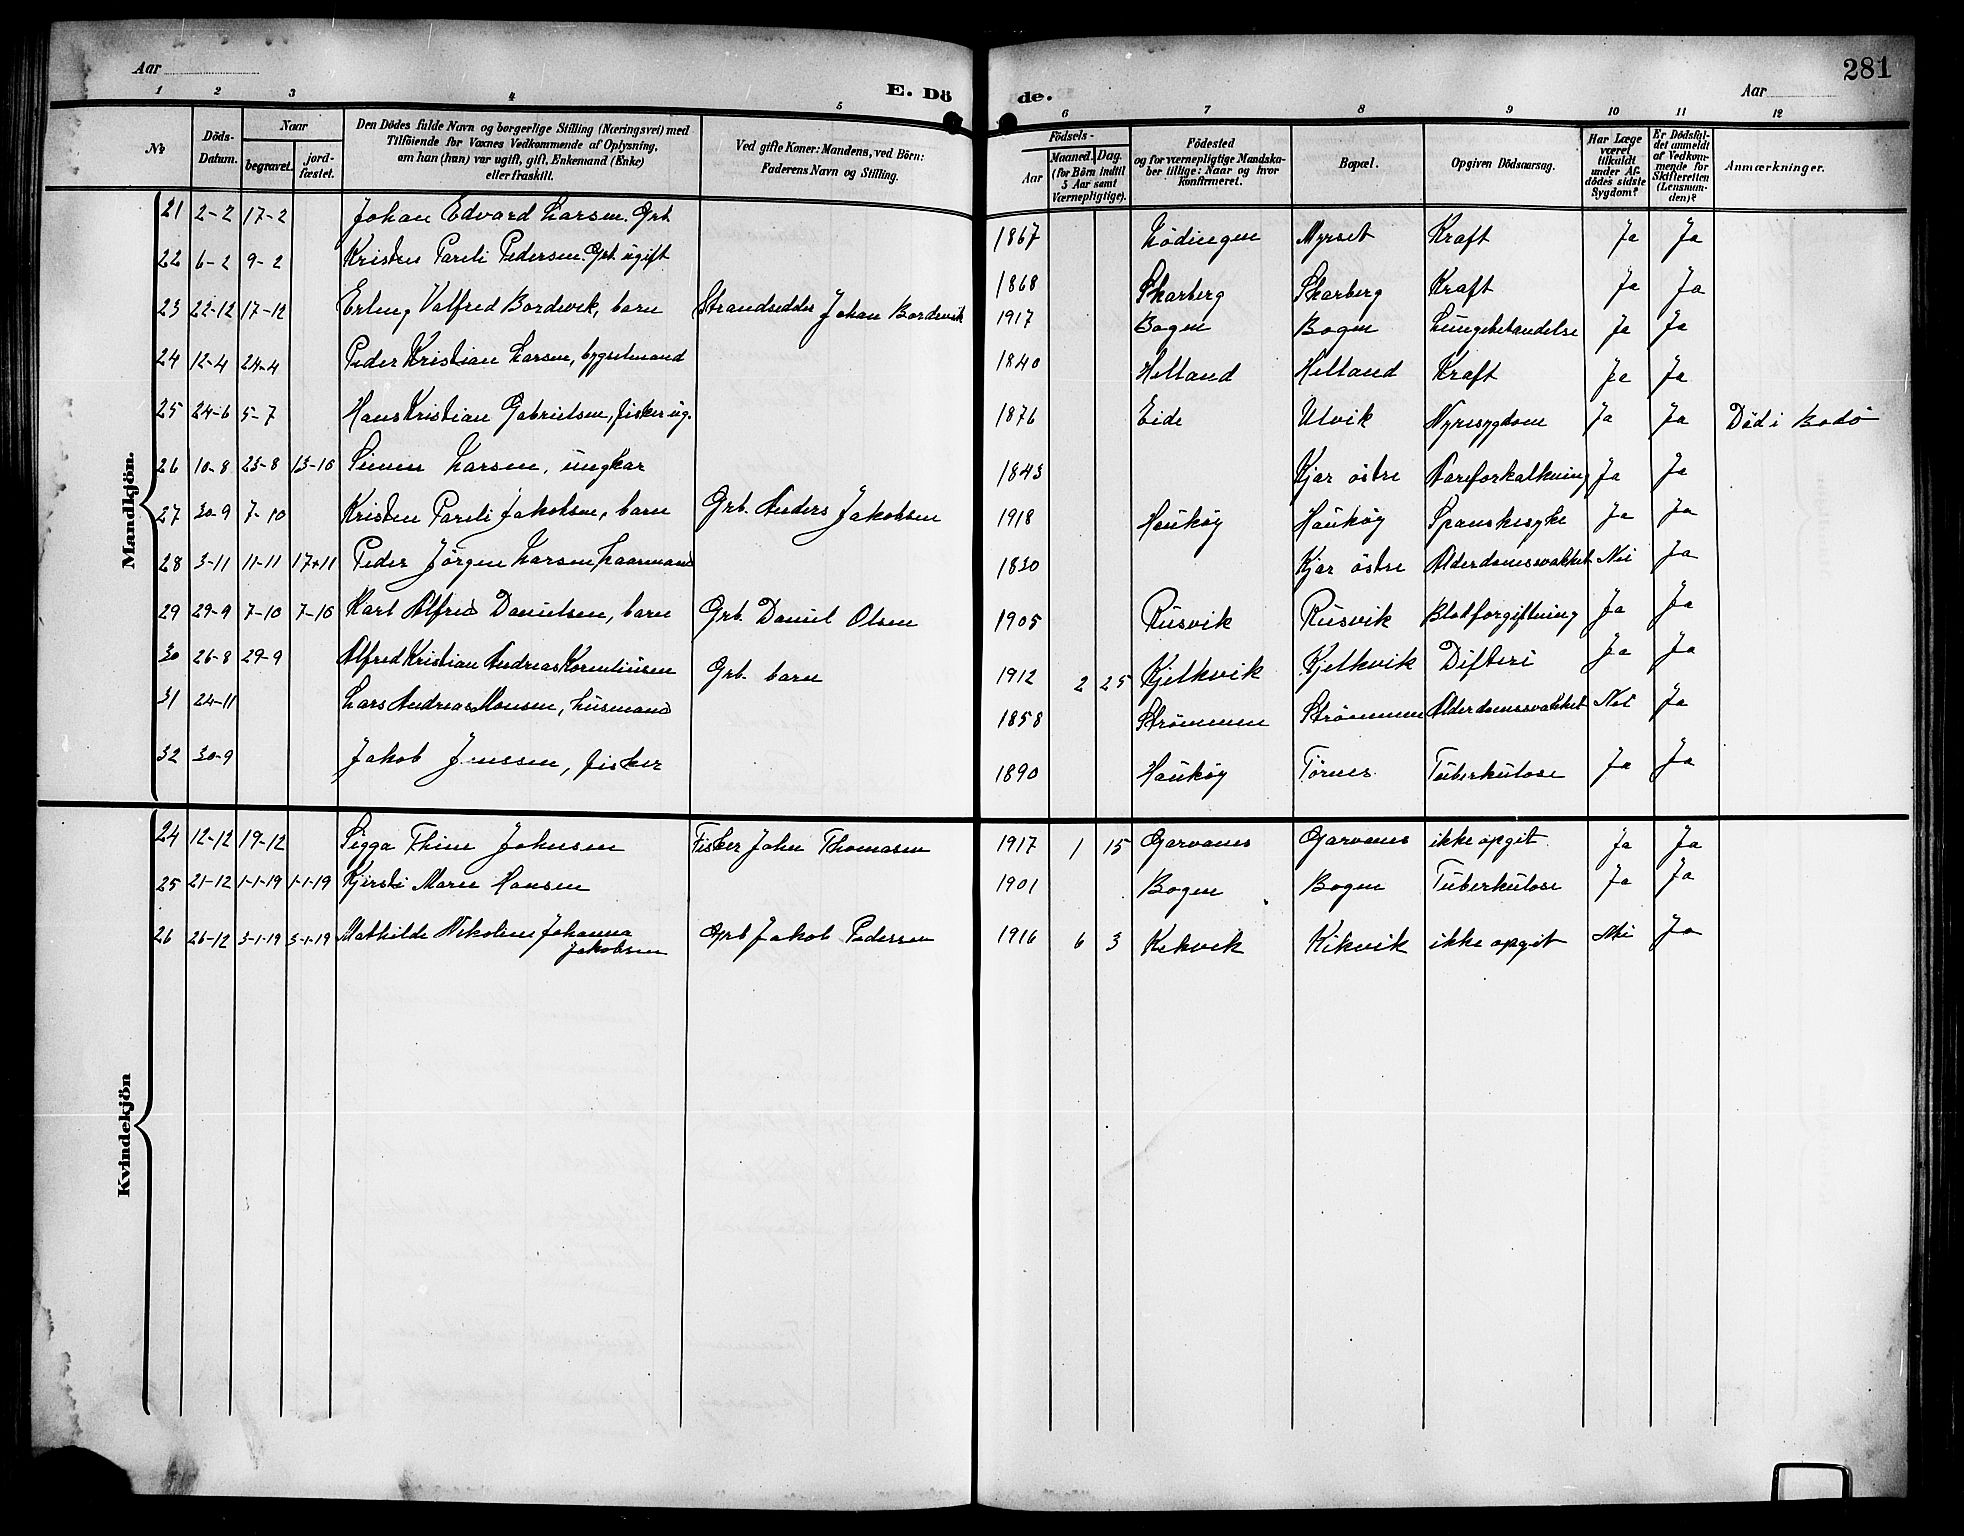 Aar
E. Dö
de.
Aar
281
1 2 3 4 5 6 7 8 9 10 11 12
№
Döds-Datum.
Naar
begravet.
jord-fæstet.
Den Dödes fulde Navn og borgerlige Stilling (Næringsvei) med
Tilföiende for Voxnes Vedkommende af Oplysning,
om han (hun) var ugift, gift, Enkemand (Enke)
eller fraskilt.
Ved gifte Koner: Mandens, ved Börn:
Faderens Navn og Stilling.
Födsels-
Aar
Maaned. Dag.
(for Börn indtil
5 Aar samt
Værnepligtige).
Födested
og for værnepligtige Mandska-
ber tillige: Naar og hvor
konfirmeret.
Bopæl.
Opgiven Dödsaarsag.
Har Læge
været
tilkaldt
under Af-
dödes sidste
Sygdom?
Er Dödsfal-
det anmeldt
af Vedkom-
mende for
Skifteretten
(Lensman-
den)?
Anmærkninger.
Mandkjön.
21 2-2 17-2 Johan Edvard Larsen. Grb. 1867 Lödingen Myrset Kraft Ja Ja
22 6-2 9-2 Kristen Pareli Pedersen. Grb. ugift 1868 Skarberg Skarberg Kraft Ja Ja
23 22-12 17-12 Erling Valfred Bordevik, barn Strandsidder Johan Bordevik 1917 Bogen Bogen Lungebetændelse Ja Ja
24 12-4 24-4 Peder Kristian Larsen, bygselmand 1840 Helland Helland Kraft Ja Ja
25 24-6 5-7 Hans Kristian Gabrielsen, fisker ug. 1876 Eide Ulvik Nyresygdom Ja Ja Död i Bodö
26 10-8 23-8 13-10 Simen Larsen, ungkar 1843 Kjær östre Aareforkalkning Ja Ja
27 30-9 7-10 Kristen Pareli Jakobsen, barn Grb. Anders Jakobsen 1918 Haukøy Haukøy Spanskesyke Ja Ja
28 3-11 11-11 17-11 Peder Jørgen Larsen Laarmand 1830 Kjær östre Alderdomssvakhet Nei Ja
29 29-9 7-10 7-10 Karl Alfred Danielsen, barn Grb. Daniel Olsen 1905 Rusvik Rusvik Blodforgiftning Ja Ja
30 26-8 29-9 Alfred Kristian Andreas Korneliusen Grb. barn 1912 2 25 Kjelkvik Kjelkvik Difteri Ja Ja
31 24-11 Lars Andreas Monsen, Husmand 1858 Strømmen Strømmen Alderdomssvakhet Nei Ja
32 30-9 Jakob Jenssen, fisker 1890 Haukøy Tørnes Tuberkulose Ja Ja
Kvindekjön
24 12-12 19-12 Sigga Thine Johnsen Fisker John Thomasen 1917 1 15 Garvanes Garvanes ikke opgit. Ja Ja
25 21-12 1-1-19 1-1-19 Kjersti Marie Hansen 1901 Bogen Bogen Tuberkulose Ja Ja
26 26-12 3-1-19 3-1-19 Mathilde Nikoline Johanna Grb Jakob Pedersen 1916 6 3 Kikvik Kikvik ikke opgit Nei Ja
Jakobsen